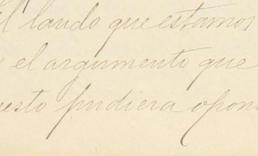 el laudo que estamos
el argumento que
puesto pudiera opon